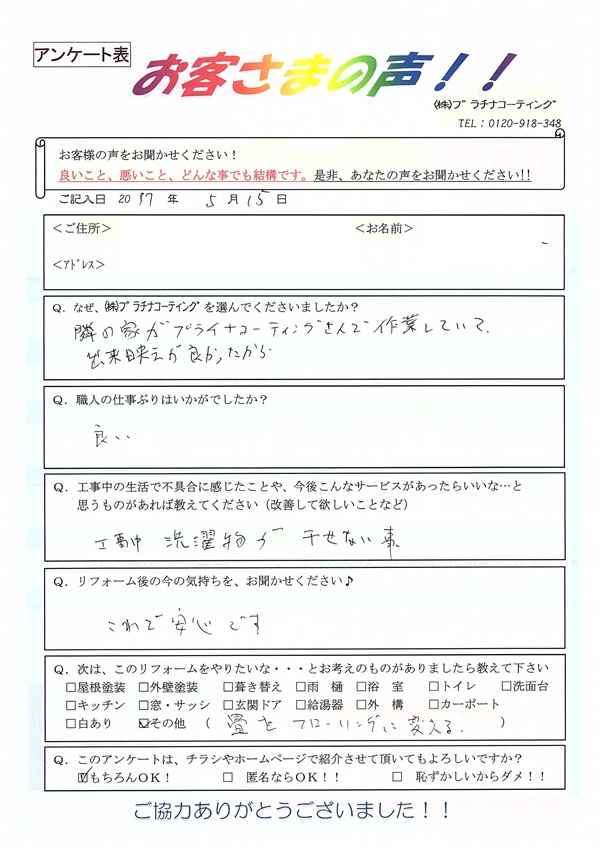 アンケート表
お客さまの声！！
㈱プラチナコーティング
TEL：0120-918-348
お客様の声をお聞かせください！
良いこと、悪いこと、どんな事でも結構です。是非、あなたの声をお聞かせください!!
ご記入日 2017 年 5 月 15 日
＜ご住所＞ ＜お名前＞
＜アドレス＞
Q．なぜ、㈱プラチナコーティングを選んでくださいましたか？
隣の家がプライナコーティングさんで作業していて、
出来映えが良かったから
Q．職人の仕事ぶりはいかがでしたか？
良い
Q．工事中の生活で不具合に感じたことや、今後こんなサービスがあったらいいな…と
思うものがあれば教えてください（改善して欲しいことなど）
工事中 洗濯物が 干せない事
Q．リフォーム後の今の気持ちを、お聞かせください♪
これで安心です
Q．次は、このリフォームをやりたいな・・・とお考えのものがありましたら教えて下さい
□屋根塗装 □外壁塗装 □葺き替え □雨 樋 □浴 室 □トイレ □洗面台
□キッチン □窓・サッシ □玄関ドア □給湯器 □外 構 □カーポート
□白あり ☑その他 （ 畳をフローリングに変える. ）
Q．このアンケートは、チラシやホームページで紹介させて頂いてもよろしいですか？
☑もちろんOK！ □ 匿名ならOK！！ □ 恥ずかしいからダメ！！
ご協力ありがとうございました！！